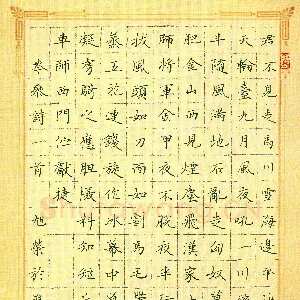 君不見走馬川雪海邊平
天輪臺九月風夜吼一川
斗隨風滿地石亂走匈奴
肥金山西見煙塵飛漢家
師將軍金甲夜不脫半夜
撥風頭如刀面如割馬毛
蒸五花連錢旋作冰幕中
凝虜騎之應膽懾料知短
車師西門佇獻捷
岑參詩一首 旭榮於